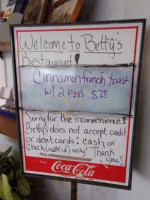 Welcome to Betty's
Restaurant!
Cinnamon french toast
w/ 2 eggs 5.75
Sorry for the inconvenience!
Betty's does not accept credit
or debit cards: cash or
check only! Thank
you
Coca-Cola